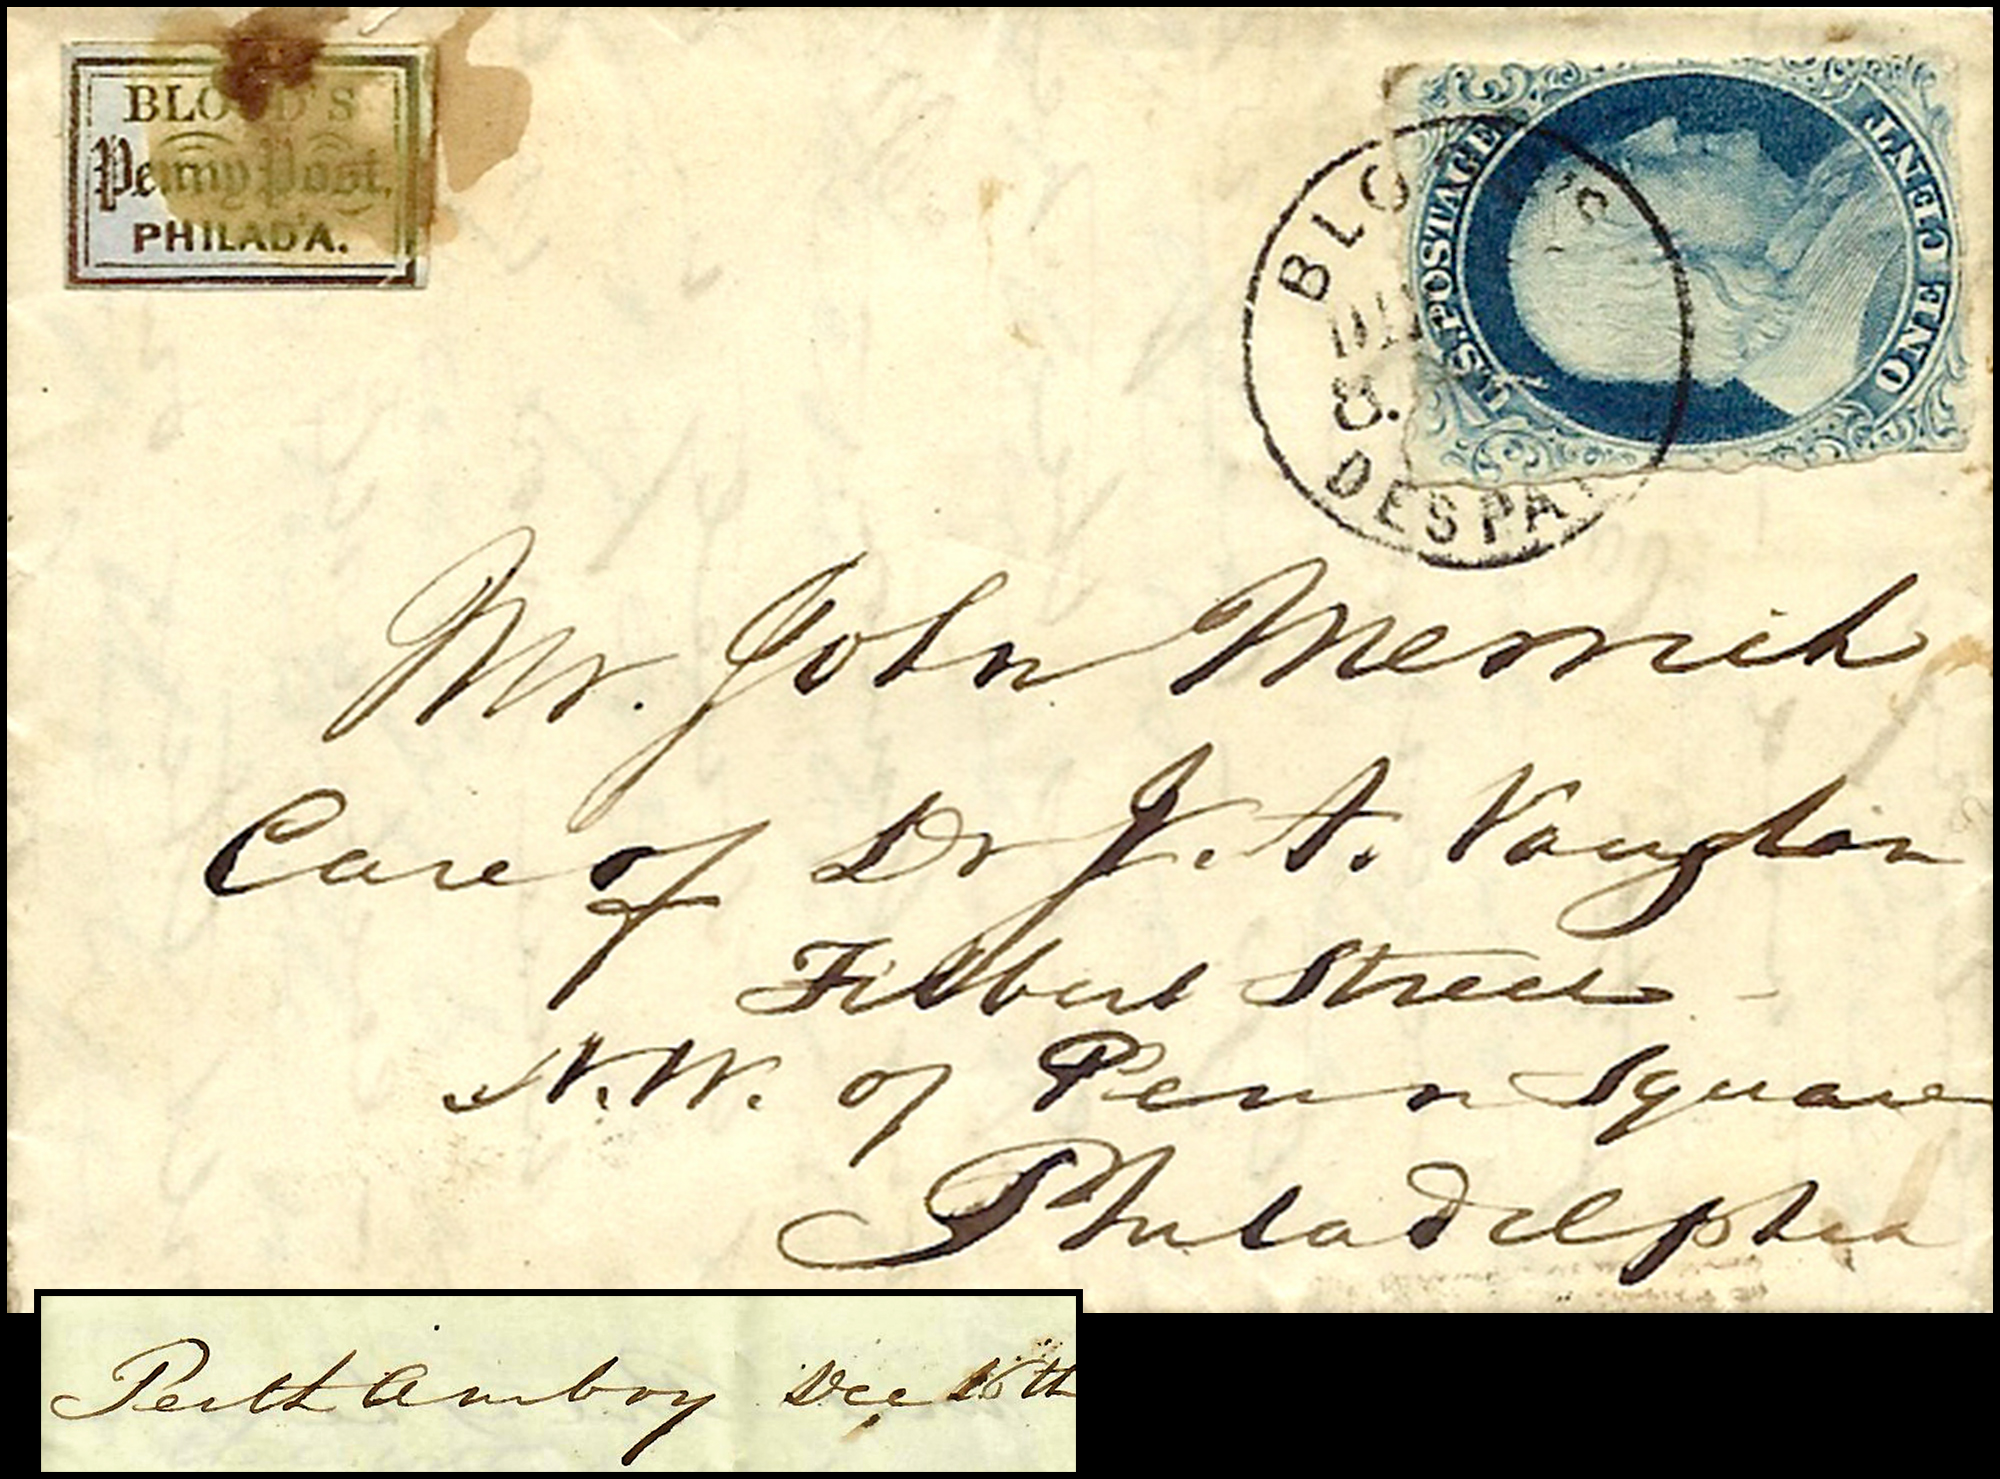 BLOOD'S
Penny Post,
PHILAD'A.
U.S. POSTAGE
ONE CENT
BLOOD'S
8.
DESPATCH
Mr. John Merrick
Care of Dr J. A. Vaughan
Filbert Street
N.W. of Penn Square
Philadelphia
Perth Amboy Dec